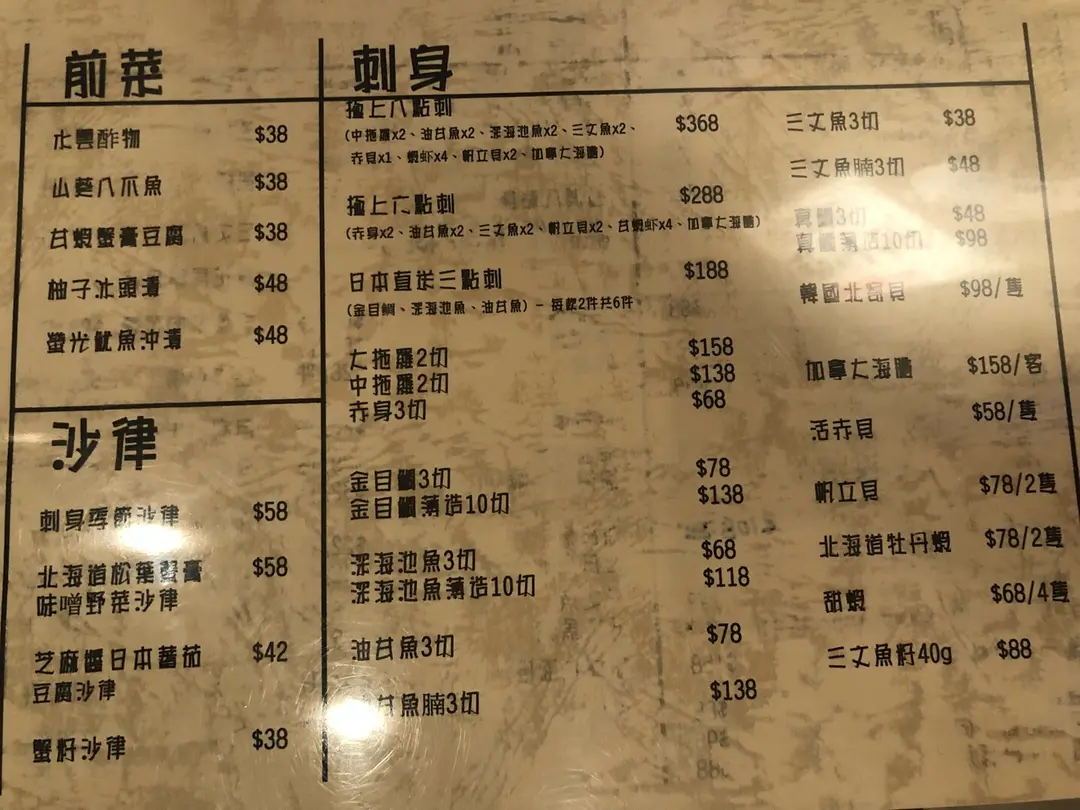 前菜
水雲酢物 $38
山葵八爪魚 $38
甘蝦蟹膏豆腐 $38
柚子汁頭漬 $48
螢光魷魚沖漬 $48
沙律
刺身季節沙律 $58
北海道松葉蟹膏 $58
味噌野菜沙律
芝麻醬日本蕃茄 $42
豆腐沙律
蟹籽沙律 $38
刺身
極上八點刺 $368
(中拖羅x2、油甘魚x2、深海池魚x2、三文魚x2、
赤貝x1、蝦虾x4、帆立貝x2、加拿大海膽)
極上六點刺 $288
(赤身x2、油甘魚x2、三文魚x2、帆立貝x2、甘蝦虾x4、加拿大海膽)
日本直送三點刺 $188
(金目鯛、深海池魚、油甘魚) - 每款2件共6件
大拖羅2切 $158
中拖羅2切 $138
赤身3切 $68
金目鯛3切 $78
金目鯛薄造10切 $138
深海池魚3切 $68
深海池魚薄造10切 $118
油甘魚3切 $78
甘魚腩3切 $138
三文魚3切 $38
三文魚腩3切 $48
真鯛3切 $48
真鯛薄造10切 $98
韓國北寄貝 $98/隻
加拿大海膽 $158/客
活赤貝 $58/隻
帆立貝 $78/2隻
北海道牡丹蝦 $78/2隻
甜蝦 $68/4隻
三文魚籽40g $88